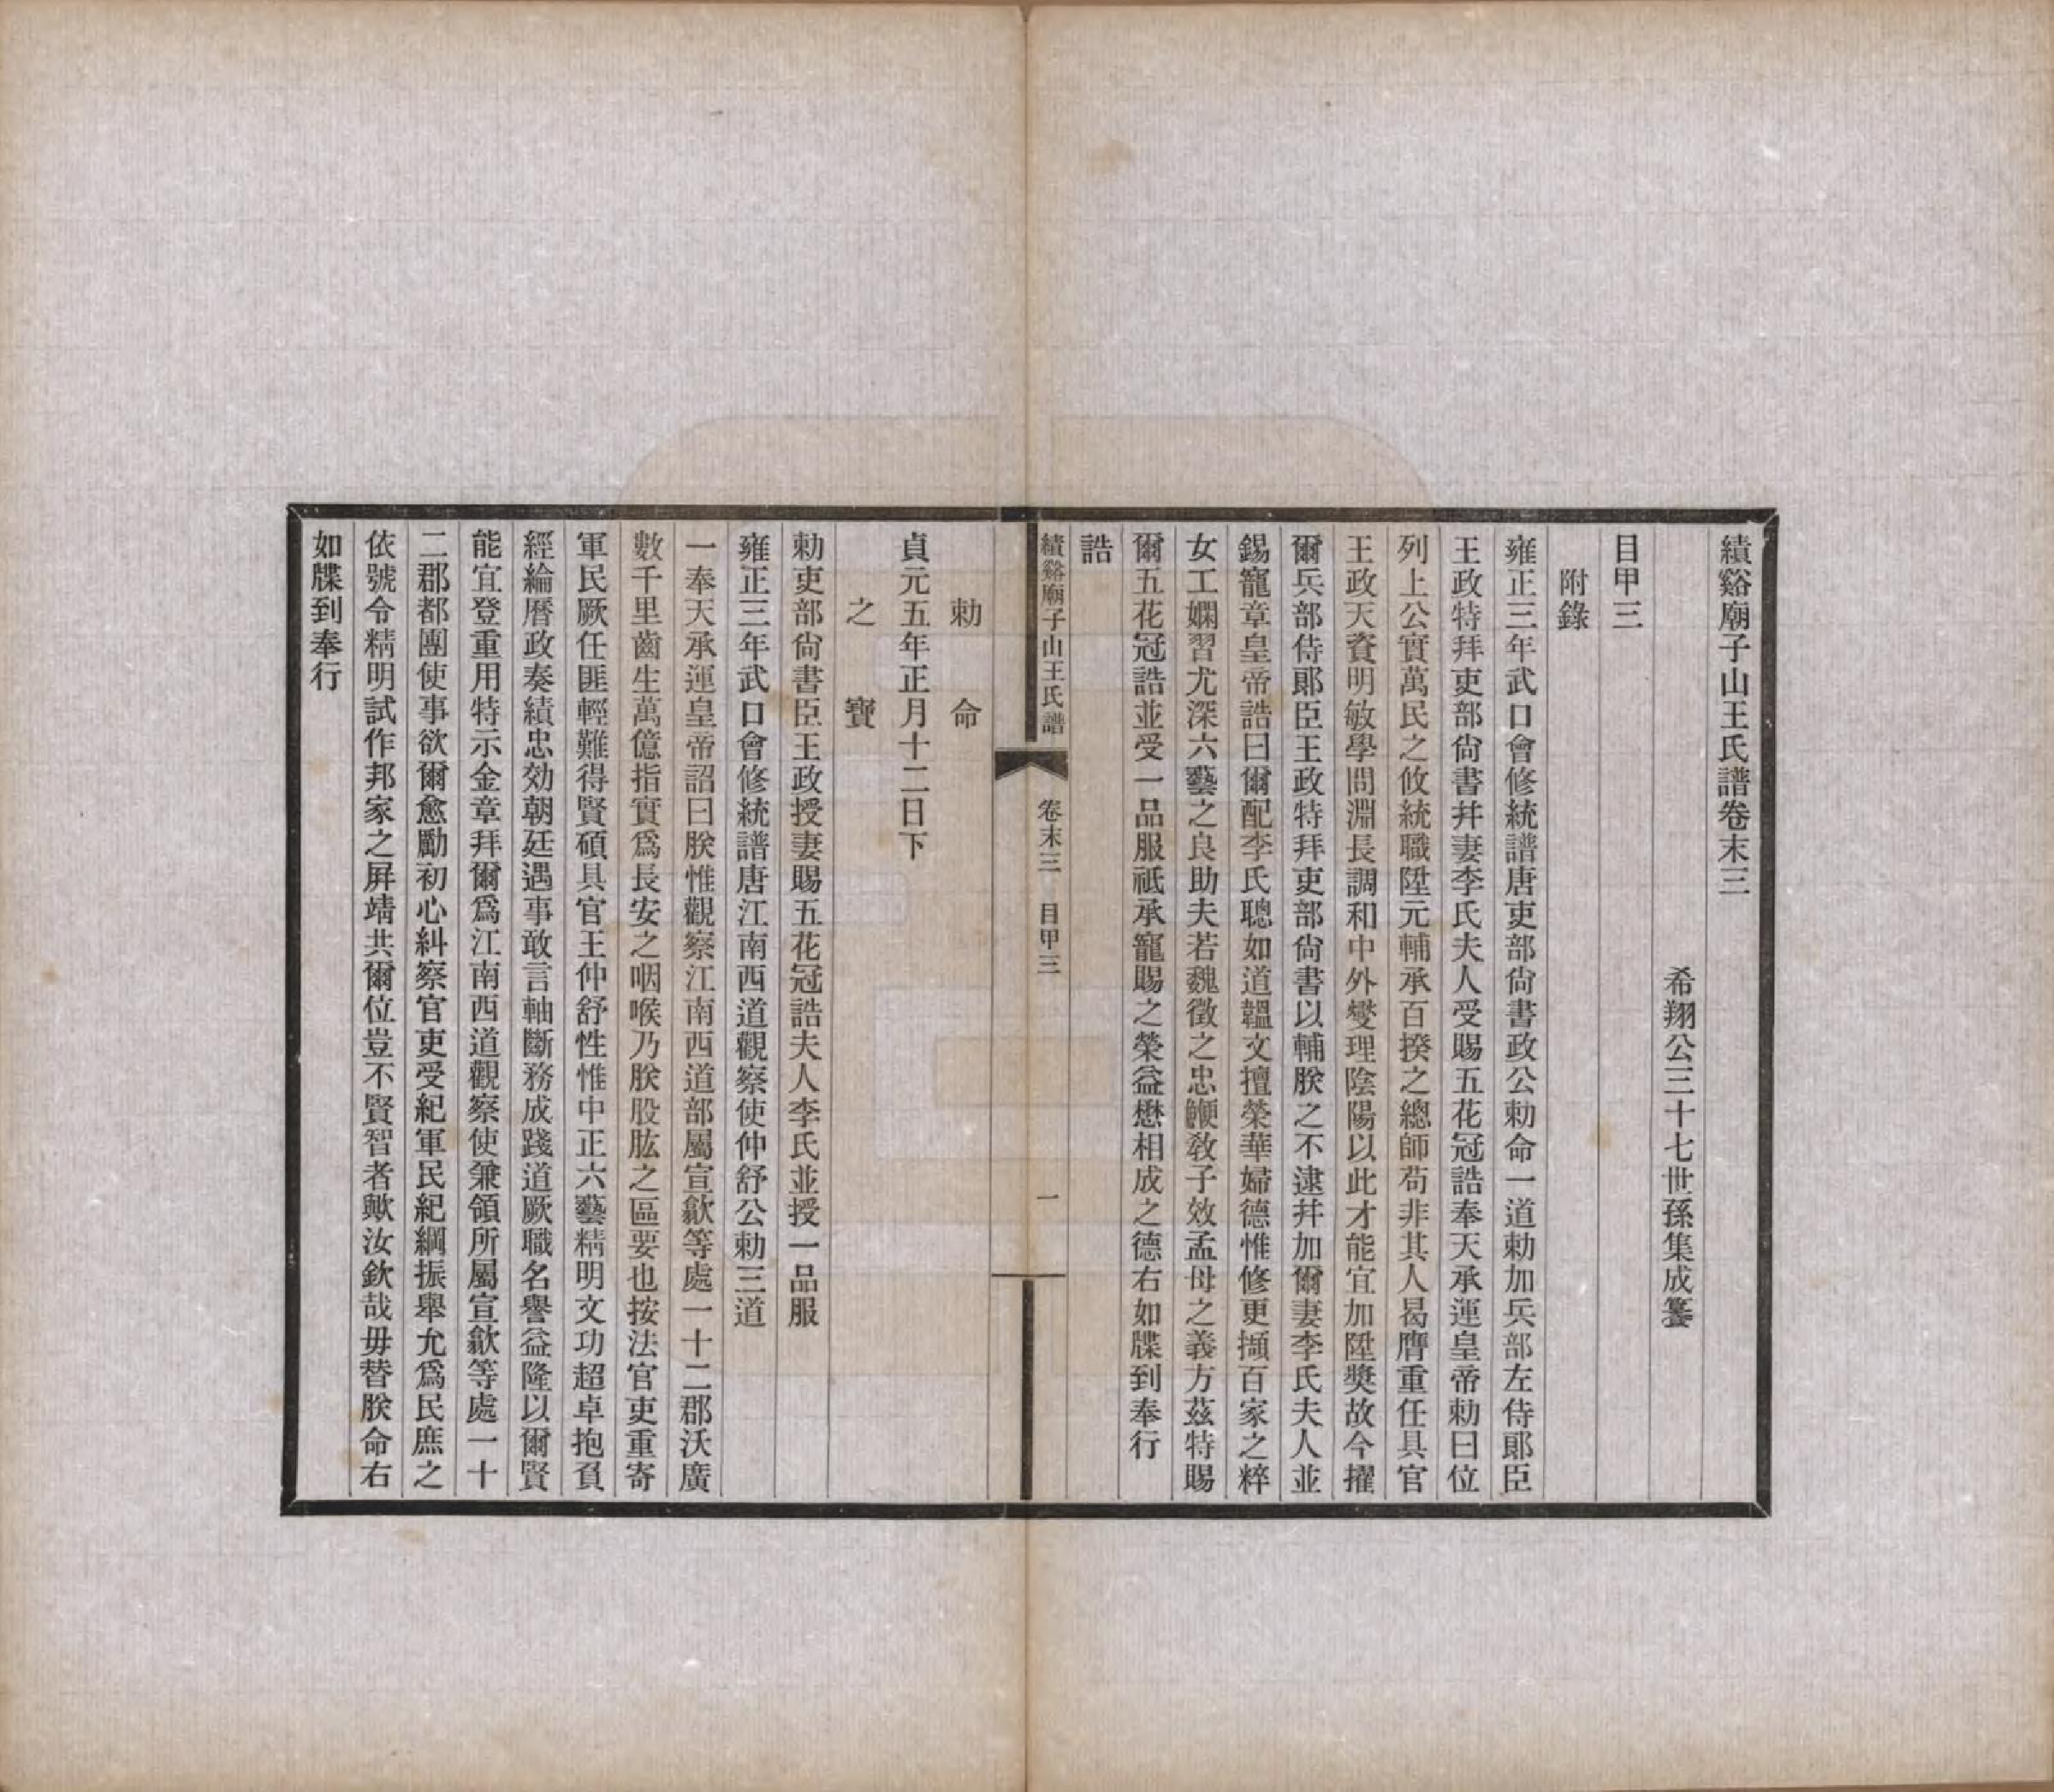 績谿廟子山王氏譜卷末三
希翔公三十七世孫集成纂
目甲三
附錄
雍正三年武口會修統譜唐吏部尙書政公勅命一道勅加兵部左侍郞臣
王政特拜吏部尙書幷妻李氏夫人受賜五花冠誥奉天承運皇帝勅曰位
列上公實萬民之攸統職陞元輔承百揆之總師苟非其人曷膺重任具官
王政天資明敏學問淵長調和中外燮理陰陽以此才能宜加陞奬故今擢
爾兵部侍郞臣王政特拜吏部尙書以輔朕之不逮幷加爾妻李氏夫人並
錫寵章皇帝誥曰爾配李氏聰如道韞文擅榮華婦德惟修更擷百家之粹
女工嫻習尤深六藝之良助夫若魏徵之忠鯁敎子效孟母之義方茲特賜
爾五花冠誥並受一品服祇承寵賜之榮益懋相成之德右如牒到奉行
誥
績谿廟子山王氏譜 卷末三 目甲三 一
勅 命
貞元五年正月十二日下
之 寶
勅吏部尙書臣王政授妻賜五花冠誥夫人李氏並授一品服
雍正三年武口會修統譜唐江南西道觀察使仲舒公勅三道
一奉天承運皇帝詔曰朕惟觀察江南西道部屬宣歙等處一十二郡沃廣
數千里齒生萬億指實爲長安之咽喉乃朕股肱之區要也按法官吏重寄
軍民厥任匪輕難得賢碩具官王仲舒性惟中正六藝精明文功超卓抱負
經綸曆政奏績忠効朝廷遇事敢言軸斷務成踐道厥職名譽益隆以爾賢
能宜登重用特示金章拜爾爲江南西道觀察使兼領所屬宣歙等處一十
二郡都團使事欲爾愈勵初心糾察官吏受紀軍民紀綱振舉允爲民庶之
依號令精明試作邦家之屛靖共爾位豈不賢智者歟汝欽哉毋替朕命右
如牒到奉行